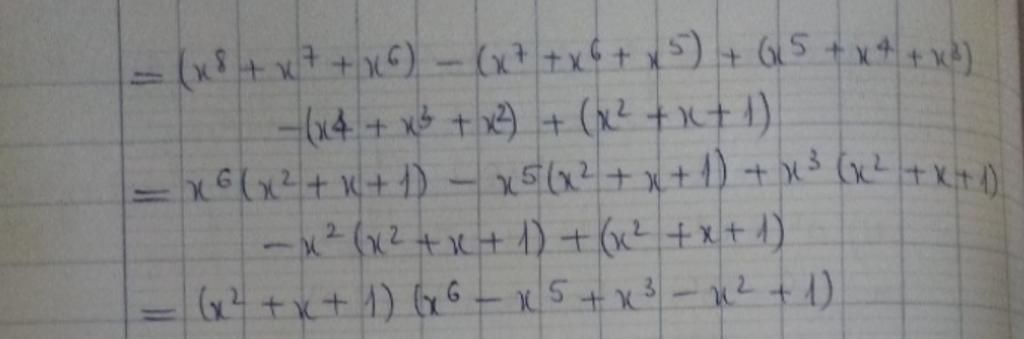 = (x⁸ + x⁷ + x⁶) - (x⁷ + x⁶ + x⁵) + (x⁵ + x⁴ + x³)
-(x4 + x³ + x²) + (x² + x + 1)
= x⁶(x² + x + 1) - x⁵(x² + x + 1) + x³ (x² + x + 1)
-x² (x² + x + 1) + (x² + x + 1)
= (x² + x + 1) (x⁶ - x⁵ + x³ - x² + 1)